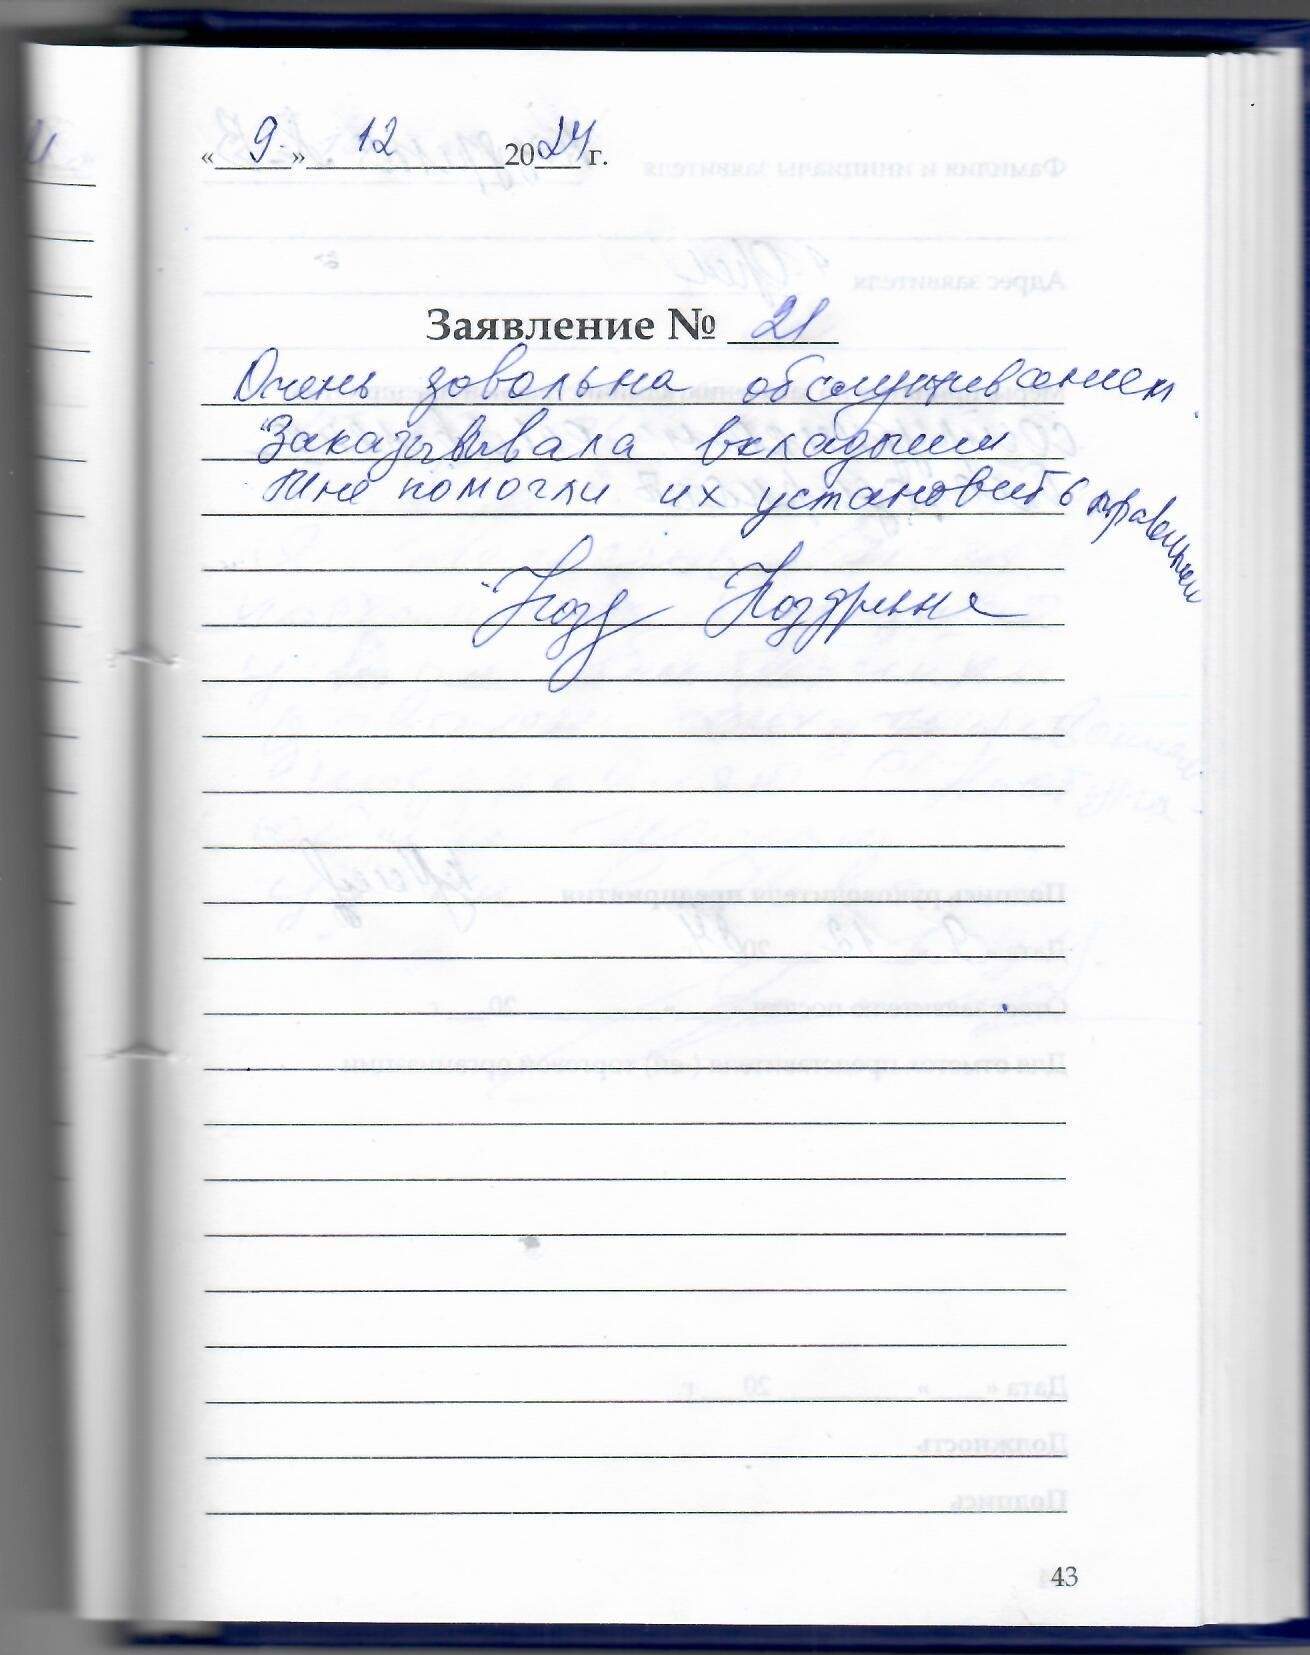 « 9. » 12 2024 г.
Заявление № 21
Очень довольна обслуживанием.
Заказывала вкладыши
Мне помогли их установить правильно
43